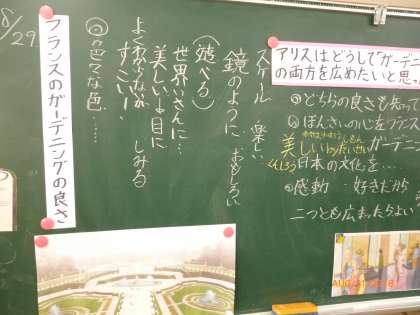 アリスはどうして「ガーデニ
の両方を広めたいと思っ
どちらの良さも知って
ぼんさいの心をフランス
美しい ガーデニ
日本の文化を…
感動 好きだから
二つとも広まったらよい
スケール 楽しい
鏡のように おもしろい
(遊べる)
世界いさんに…
美しい→目に
しみる
よくわからないが
すごい!、
色々な色……
フランスのガーデニングの良さ
8/29